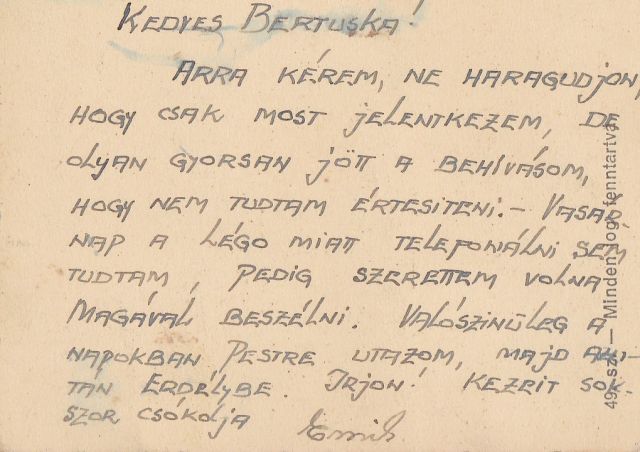 KEDVES BERTUSKA!
ARRA KÉREM, NE HARAGUDJON,
HOGY CSAK MOST JELENTKEZEM, DE
OLYAN GYORSAN JÖTT A BEHÍVÁSOM,
HOGY NEM TUDTAM ÉRTESITENI. – VASÁR-
NAP A LÉGO MIATT TELEFONÁLNI SEM
TUDTAM, PEDIG SZERETTEM VOLNA
MAGÁVAL BESZÉLNI. VALÓSZINÜLEG A
NAPOKBAN PESTRE UTAZOM, MAJD
TÁN ERDÉLYBE. IRJON! KEZEIT SOK-
SZOR CSÓKOLJA Emil
49 sz. — Minden jog fenntartva